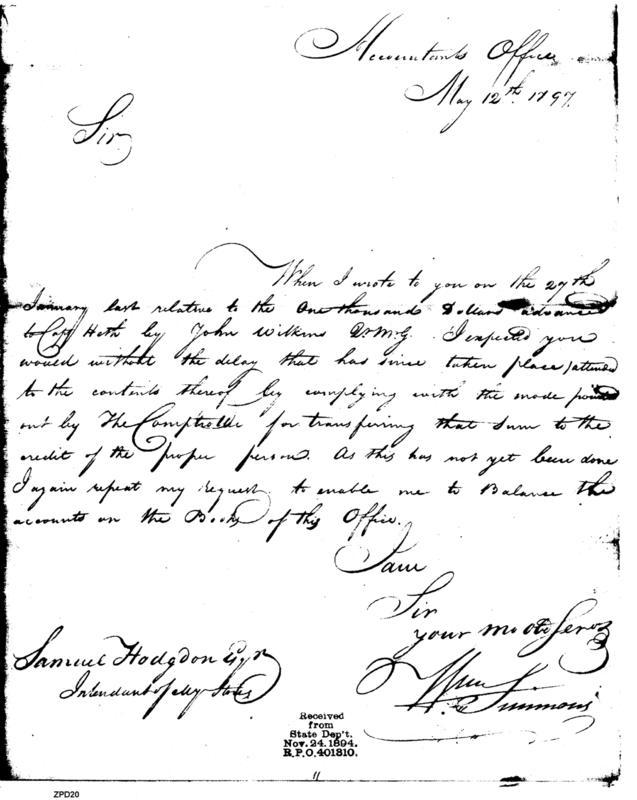 Accountants Office
May 12th. 1797.
Sir
When I wrote to you on the 27th
January last relative to the One thousand Dollars advanced
to Capt Heth by John Wilkins QrMrG. I expected you
would without the delay that has since taken place, attended
to the contents thereof by complying with the mode pointed
out by The Comptroller for transfering that Sum to the
credit of the proper person. As this has not yet been done
I again repeat my request to enable me to Balance the
accounts on the Books of this Office.
I am
Sir
your Servt
Samuel Hodgdon Esqr
Intendant of Mily Stores
Wm Simmons
Received
from
State Dep't.
Nov. 24. 1894.
R.P.O. 401310.
11
ZPD20